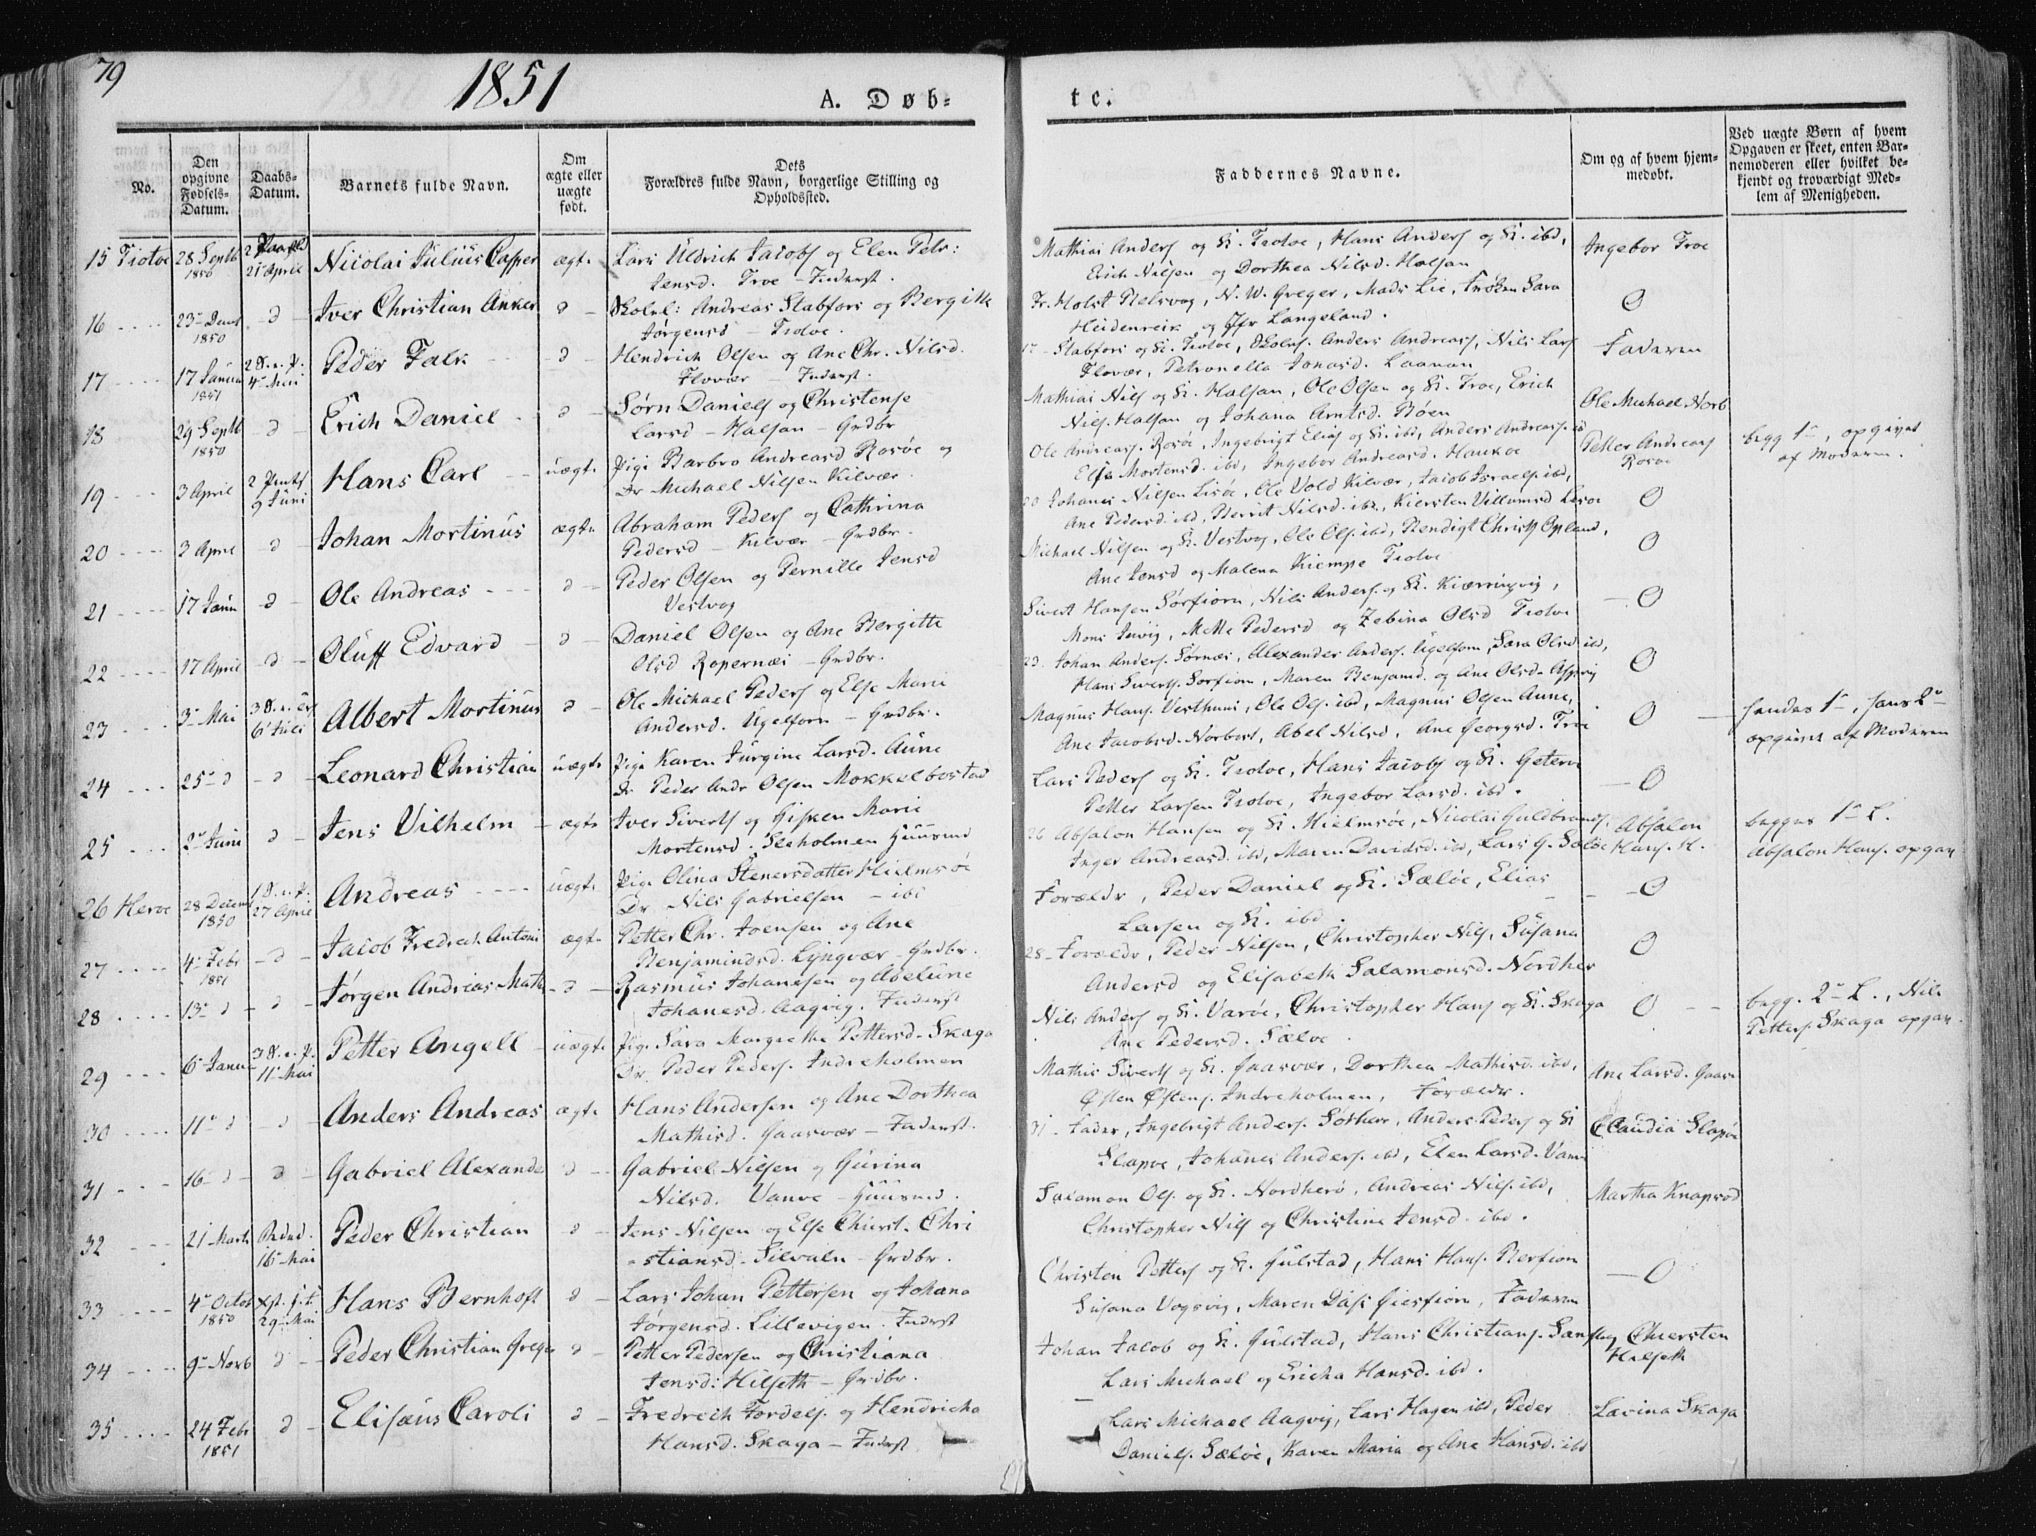 79
1851
A. Døb-
te.
No.
Den opgivne Fødsels-Datum.
Daabs-Datum.
Barnets fulde Navn.
Om ægte eller uægte født.
Dets Forældres fulde Navn, borgerlige Stilling og Opholdssted.
Faddernes Navne.
Om og af hvem hjem-medøbt.
Ved uægte Børn af hvem Opgaven er skeet, enten Bar-nemoderen eller hvilket be-kjendt og troværdigt Med-lem af Menigheden.
15 Tiotøe 28 Septb 1850 21 April Nicolai Julius Casper ægte Lars Uldrich Jacobs og Elen Petr:
Jensd. Troe - Inderst.
Mathias Anders og K. Tiotøe, Hans Anders og K. ibd, Ingebor Troe
Erich Nilsen og Dorthea Nilsd. Halsan
16 23 Decb 1850 d Iver Christian Anker d Skolel: Andreas Stabfors og Bergitte
Jørgensd - Tiotøe.
Fr. Holst Belsvog, N. W. Greger, Mads Lie, Frøken Sara O
Heidenreik og Jfr Langeland.
17 17 Janua 1851 4 Mai Peder Falk d Hendrich Olsen og Ane Chr. Nilsd.
Flovær - Inderst.
17 - Stabfors og K. Tiotøe, Skolel. Anders Andreas, Nils Lars Faderen
Flovær, Petronella Jonasd. Laanan
18 29 Septb 1850 d Erich Daniel d Sørn Daniels og Christense
Larsd - Halsan - Grdbr
Mathias Nils og K. Halsan, Ole Olsen og K. Troe, Erich Ole Michael Norb
Nils. Halsan og Johana Arntsd. Bøen
19 3 April 2 Pints 9 Juni Hans Carl uægt. Pige Barbro Andreasd Rosøe og
Dr Michael Nilsen Kilvær
Ole Andreas. Rosøe, Ingebrigt Elias og K. ibd, Anders Andreas. ib Petter Andreas Rosøe begg 1, opgivet
Else Mortensd. ibd, Ingebor Andreasd. Haukøe af Moderen.
20 3 April d Johan Mortinus ægte Abraham Peders og Cathrina
Pedersd - Kilvær - Grdbr.
20 Johanes Nilsen Lisøe, Ole Vold Kilvær, Jacob Israels. ibd, O
Ane Pedersd. ibd, Berrit Nilsd. ibd, Kiersten Villumsd Lisøe
21 17 Janu d Ole Andreas d Peder Olsen og Pernille Jensd
Vestvog
Michael Nilsen og K. Vestvog, Ole Ols. ibd, Bendigt Christ. Opland, O
Ane Jensd og Malena Kiempe Tiotøe
22 17 April d Oluff Edvard d Daniel Olsen og Ane Bergitte
Olsd Ropernæs - Grdbr.
Sivert Hansen Sørfiorn, Nils Anders. og K. Kiærringvig, O
Mons Isvig, Mette Pedersd og Zebina Olsd Tiotøe
23 3 Mai 6 Juli Albert Mortinus d Ole Michael Peders og Else Marie
Andersd. Ugelforn - Grdbr.
23. Johan Anders. Sørnæs, Alexander Anders. Ugelforn, Sara Olsd ibd, O
Hans Siverts. Sørfiorn, Maren Benjamd. og Ane Olsd.
24 25 d d Leonard Christian uægte Pige Karen Jurgine Larsd. Aune
Dr Peder Andr Olsen Mokkelbostad
Magnus Hans. Vesthuus, Ole Ols. ibd, Magnus Olsen Aune, O hendes 1, hans 2
Ane Jacobsd. Norbost, Abel Nilsd, Ane Georgsd. Troe opgivet af Moderen
25 2 Juni d Jens Vilhelm ægte Iver Siverts og Gisken Marie
Mortensd. Seeholmen Huusmd
Lars Peders og K. Tiotøe, Hans Jacobs og K. O
Petter Larsen Tiotøe, Ingebor Larsd. ibd.
26 Herøe 28 Decem 1850 27 April Andreas uægte Pige Olina Stenersdatter Hielmsøe
Dr Nils Gabrielsen - ibd
26 Absalon Hansen og K. Hielmsøe, Nicolai Guldbrands. Absalon begges 1 L.
Inger Andreasd. ibd, Maren Davidsd. ibd, Lars G. Sæløe Hans. H. Absalon Hans. opgav
27 4 Febr 1851 d Jacob Fredrech Antoni ægte Petter Chr. Joensen og Ane
Benjamindsd. Lyngvær - Grdbr.
Forældr, Peder Daniel og K. Sæløe, Elias O
Larsen og K. ibd
28 13 d d Jørgen Andreas Math d Rasmus Johansen og Abelune
Johanesd. Aagvig. Inderst
28 - Forældr, Peder Nilsen, Christopher Nils, Susana O
Andersd og Elisabeth Salamonsd. Nordher
29 6 Janu 11 Mai Petter Angell uægte Pige Sara Margrethe Pettersd. Skaga
Dr Peder Peders. Indreholmen
Nils Anders og K. Varøe, Christopher Hans og K. Skaga O begg. 2 L., Nils
Ane Pedersd. Sæløe. Petters. Skaga opgav.
30 11 d d Anders Andreas ægte Hans Andersen og Ane Dorthea
Mathisd. Gaasvær - Inderst.
Mathis Siverts og K. Gaasvær, Dorthea Mathisd. ibd, Ane Larsd. Gaas
Østen Østens. Indreholmen, Forældr.
31 16 d d Gabriel Alexander d Gabriel Nilsen og Gurina
Nilsd. Vanve - Huusmd.
31 - Fader, Ingebrigt Anders. Sørherø, Anders Peders og K Claudia Slapøe
Slapøe, Johanes Anders. ibd, Elen Larsd. Vanve
32 21 Marts 16 Mai Peder Christian d Jens Nilsen og Else Chirst. Chri
-stiansd. Silvaln - Grdbr.
Salamon Ols. og K. Nordherø, Andreas Nils. ibd, Martha Knapsod
Christopher Nils og Christine Jensd. ibd.
33 4 Octob 1850 29 Mai Hans Bernhoft d Lars Johan Pettersen og Johana
Jørgensd. Lillevigen. Inderst
Christen Petters og K. Gulstad, Hans Hans. Berfiorn O
Susana Vogsvig, Maren Faderen
34 9 Novb d Peder Christian Greger d Petter Pedersen og Christiana
Jensd: Hilseth - Grdbr.
Johan Jacob og K. Gulstad, Hans Christians. Chiersten
Lars Michael og Ericha Hansd. ibd. Hilseth
35 24 Febr 1851 d Elisæus Caroli d Fredrech Tordels. og Hendricha
Hansd. Skaga - Inderst
Lars Michael Aagvig, Lars Hagen ibd, Peder Lavina Skaga
Daniels. Sæløe, Karen Maria og Ane Hansd. ibd